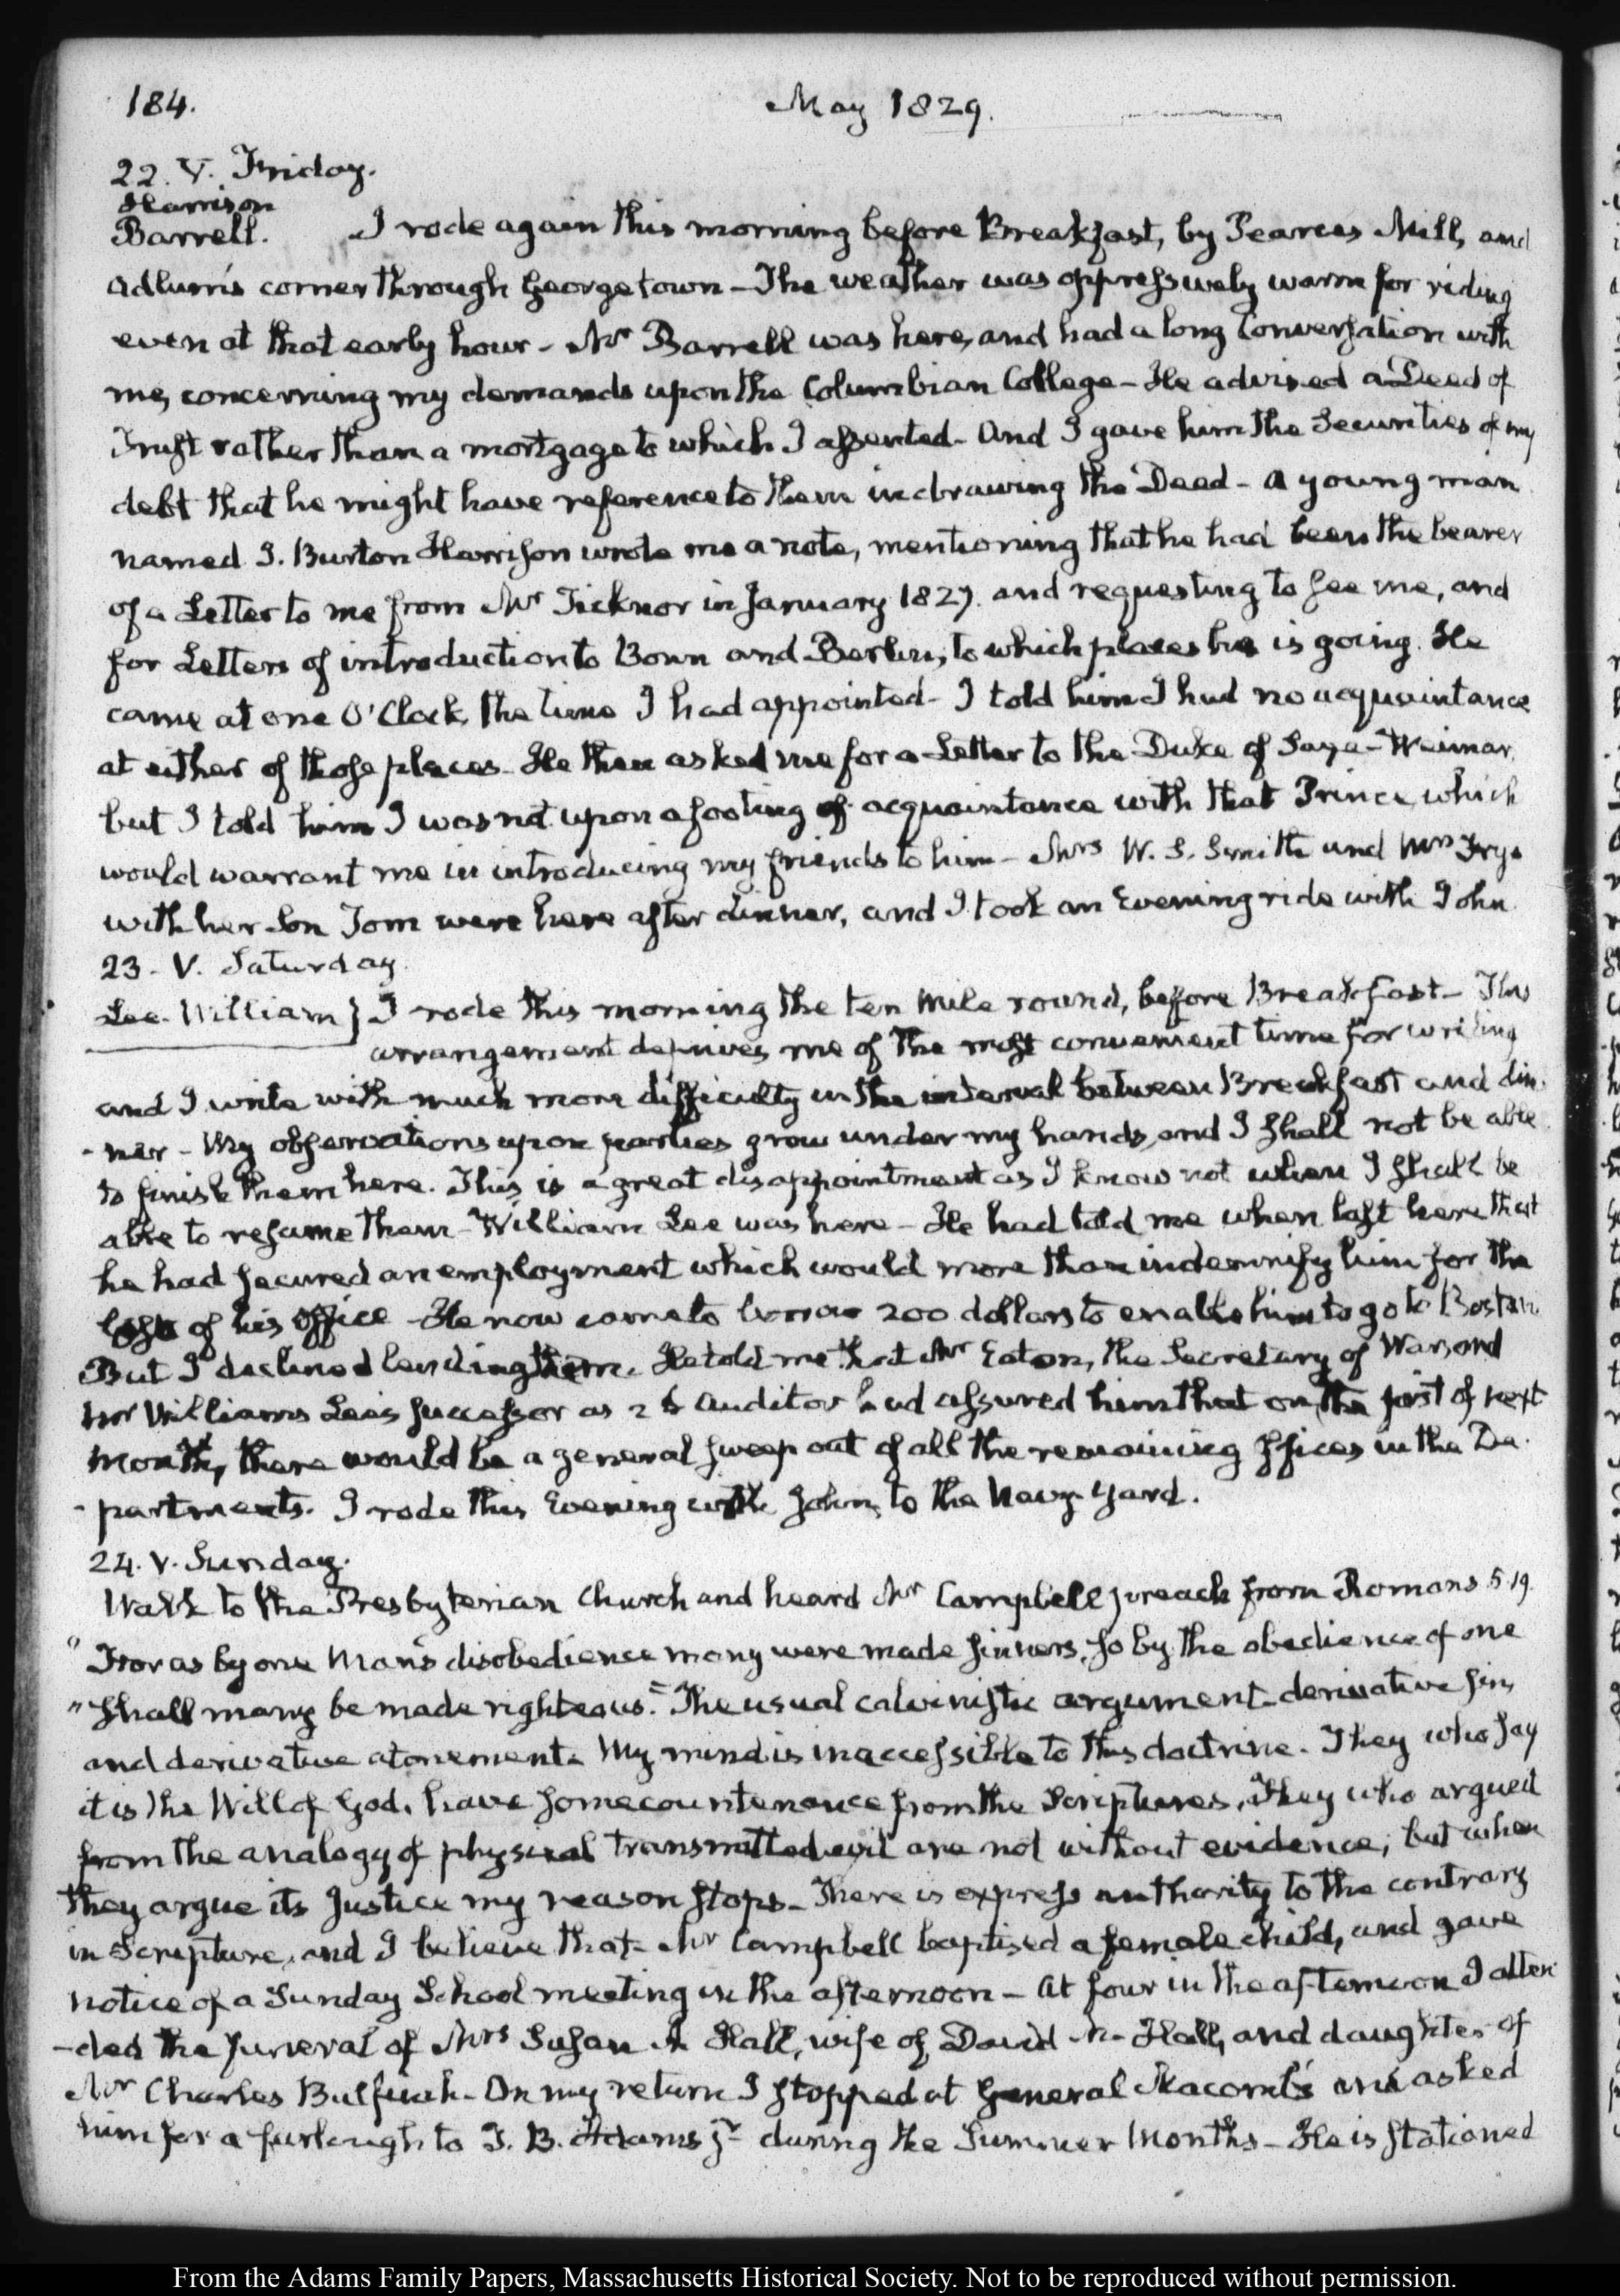 184.
May 1829.
22. V. Friday.
Harrison
Barrell.
I rode again this morning before Breakfast, by Pearces Mill, and
Adlum's corner through Georgetown – The weather was oppressively warm for riding
even at that early hour – Mr Barrell was here, and had a long Conversation with
me, concerning my demands upon the Columbian College – He advised a Deed of
Trust rather than a mortgage to which I assented – And I gave him the Securities of my
debt that he might have reference to them in drawing the Deed – A young man
named J. Burton Harrison wrote me a note, mentioning that he had been the bearer
of a Letter to me from Mr Ticknor in January 1827. and requesting to see me, and
for Letters of introduction to Bonn and Berlin, to which places he is going. He
came at one O'Clock, the time I had appointed – I told him I had no acquaintance
at either of those places – He then asked me for a Letter to the Duke of Saxe-Weimar,
but I told him I was not upon a footing of acquaintance with that Prince, which
would warrant me in introducing my friends to him – Mrs W. S. Smith and Mrs Frye
with her Son Tom were here after dinner, and I took an Evening ride with John.
23. V. Saturday.
Lee. William } I rode this morning the ten mile round, before Breakfast – This
arrangement deprives me of the most convenient time for writing
and I write with much more difficulty in the interval between Breakfast and din-
-ner – My observations upon parties grow under my hands, and I shall not be able
to finish them here. This is a great disappointment as I know not when I shall be
able to resume them – William Lee was here – He had told me when last here that
he had secured an employment which would more than indemnify him for the
loss of his office – He now came to borrow 200 dollars to enable him to go to Boston.
But I declined lending them. He told me that Mr Eaton, the Secretary of War, and
Mr Williams Lee's successor as 2d Auditor had assured him that on the first of next
month, there would be a general sweep out of all the remaining offices in the De-
-partments. I rode this Evening with John, to the Navy Yard.
24. V. Sunday.
Walk to the Presbyterian Church and heard Mr Campbell preach from Romans 5.19.
" For as by one Man's disobedience many were made sinners, so by the obedience of one
" shall many be made righteous." The usual calvinistic argument – derivative sin,
and derivative atonement. My mind is inaccessible to this doctrine. They who say
it is the Will of God, have some countenance from the Scriptures, They who argued
from the analogy of physical transmitted evil are not without evidence; but when
they argue its justice my reason stops – There is express authority to the contrary
in Scripture, and I believe that – Mr Campbell baptised a female child, and gave
notice of a Sunday School meeting in the afternoon – At four in the afternoon I atten-
-ded the funeral of Mrs Susan A Hall, wife of David A. Hall, and daughter of
Mr Charles Bulfinch – On my return I stopped at General Macomb's and asked
him for a furlough to T. B. Adams jr. during the Summer Months – He is stationed
From the Adams Family Papers, Massachusetts Historical Society. Not to be reproduced without permission.